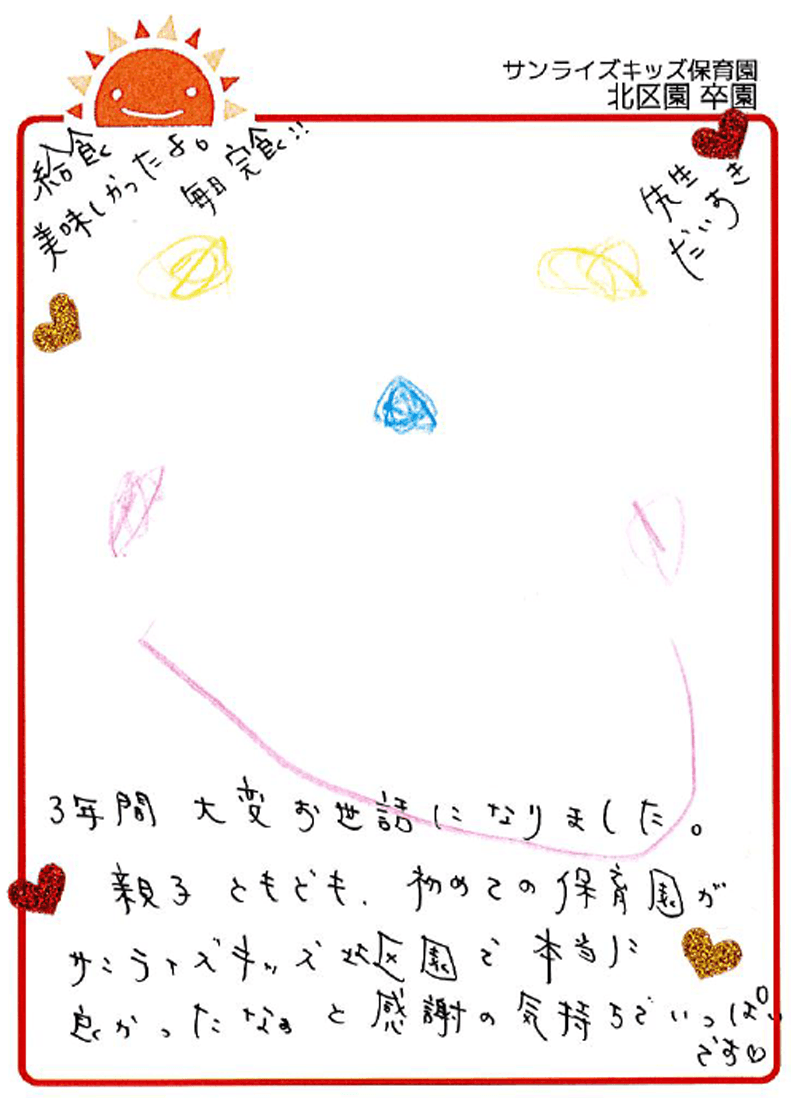 サンライズキッズ保育園
北区園 卒園
給食
美味しかったよ。
毎日 完食!!
先生
だいすき
3年間 大変お世話になりました。
親子ともども、初めての保育園が
サンライズキッズ北区園で本当に
良かったなぁと感謝の気持ちでいっぱい
です♡